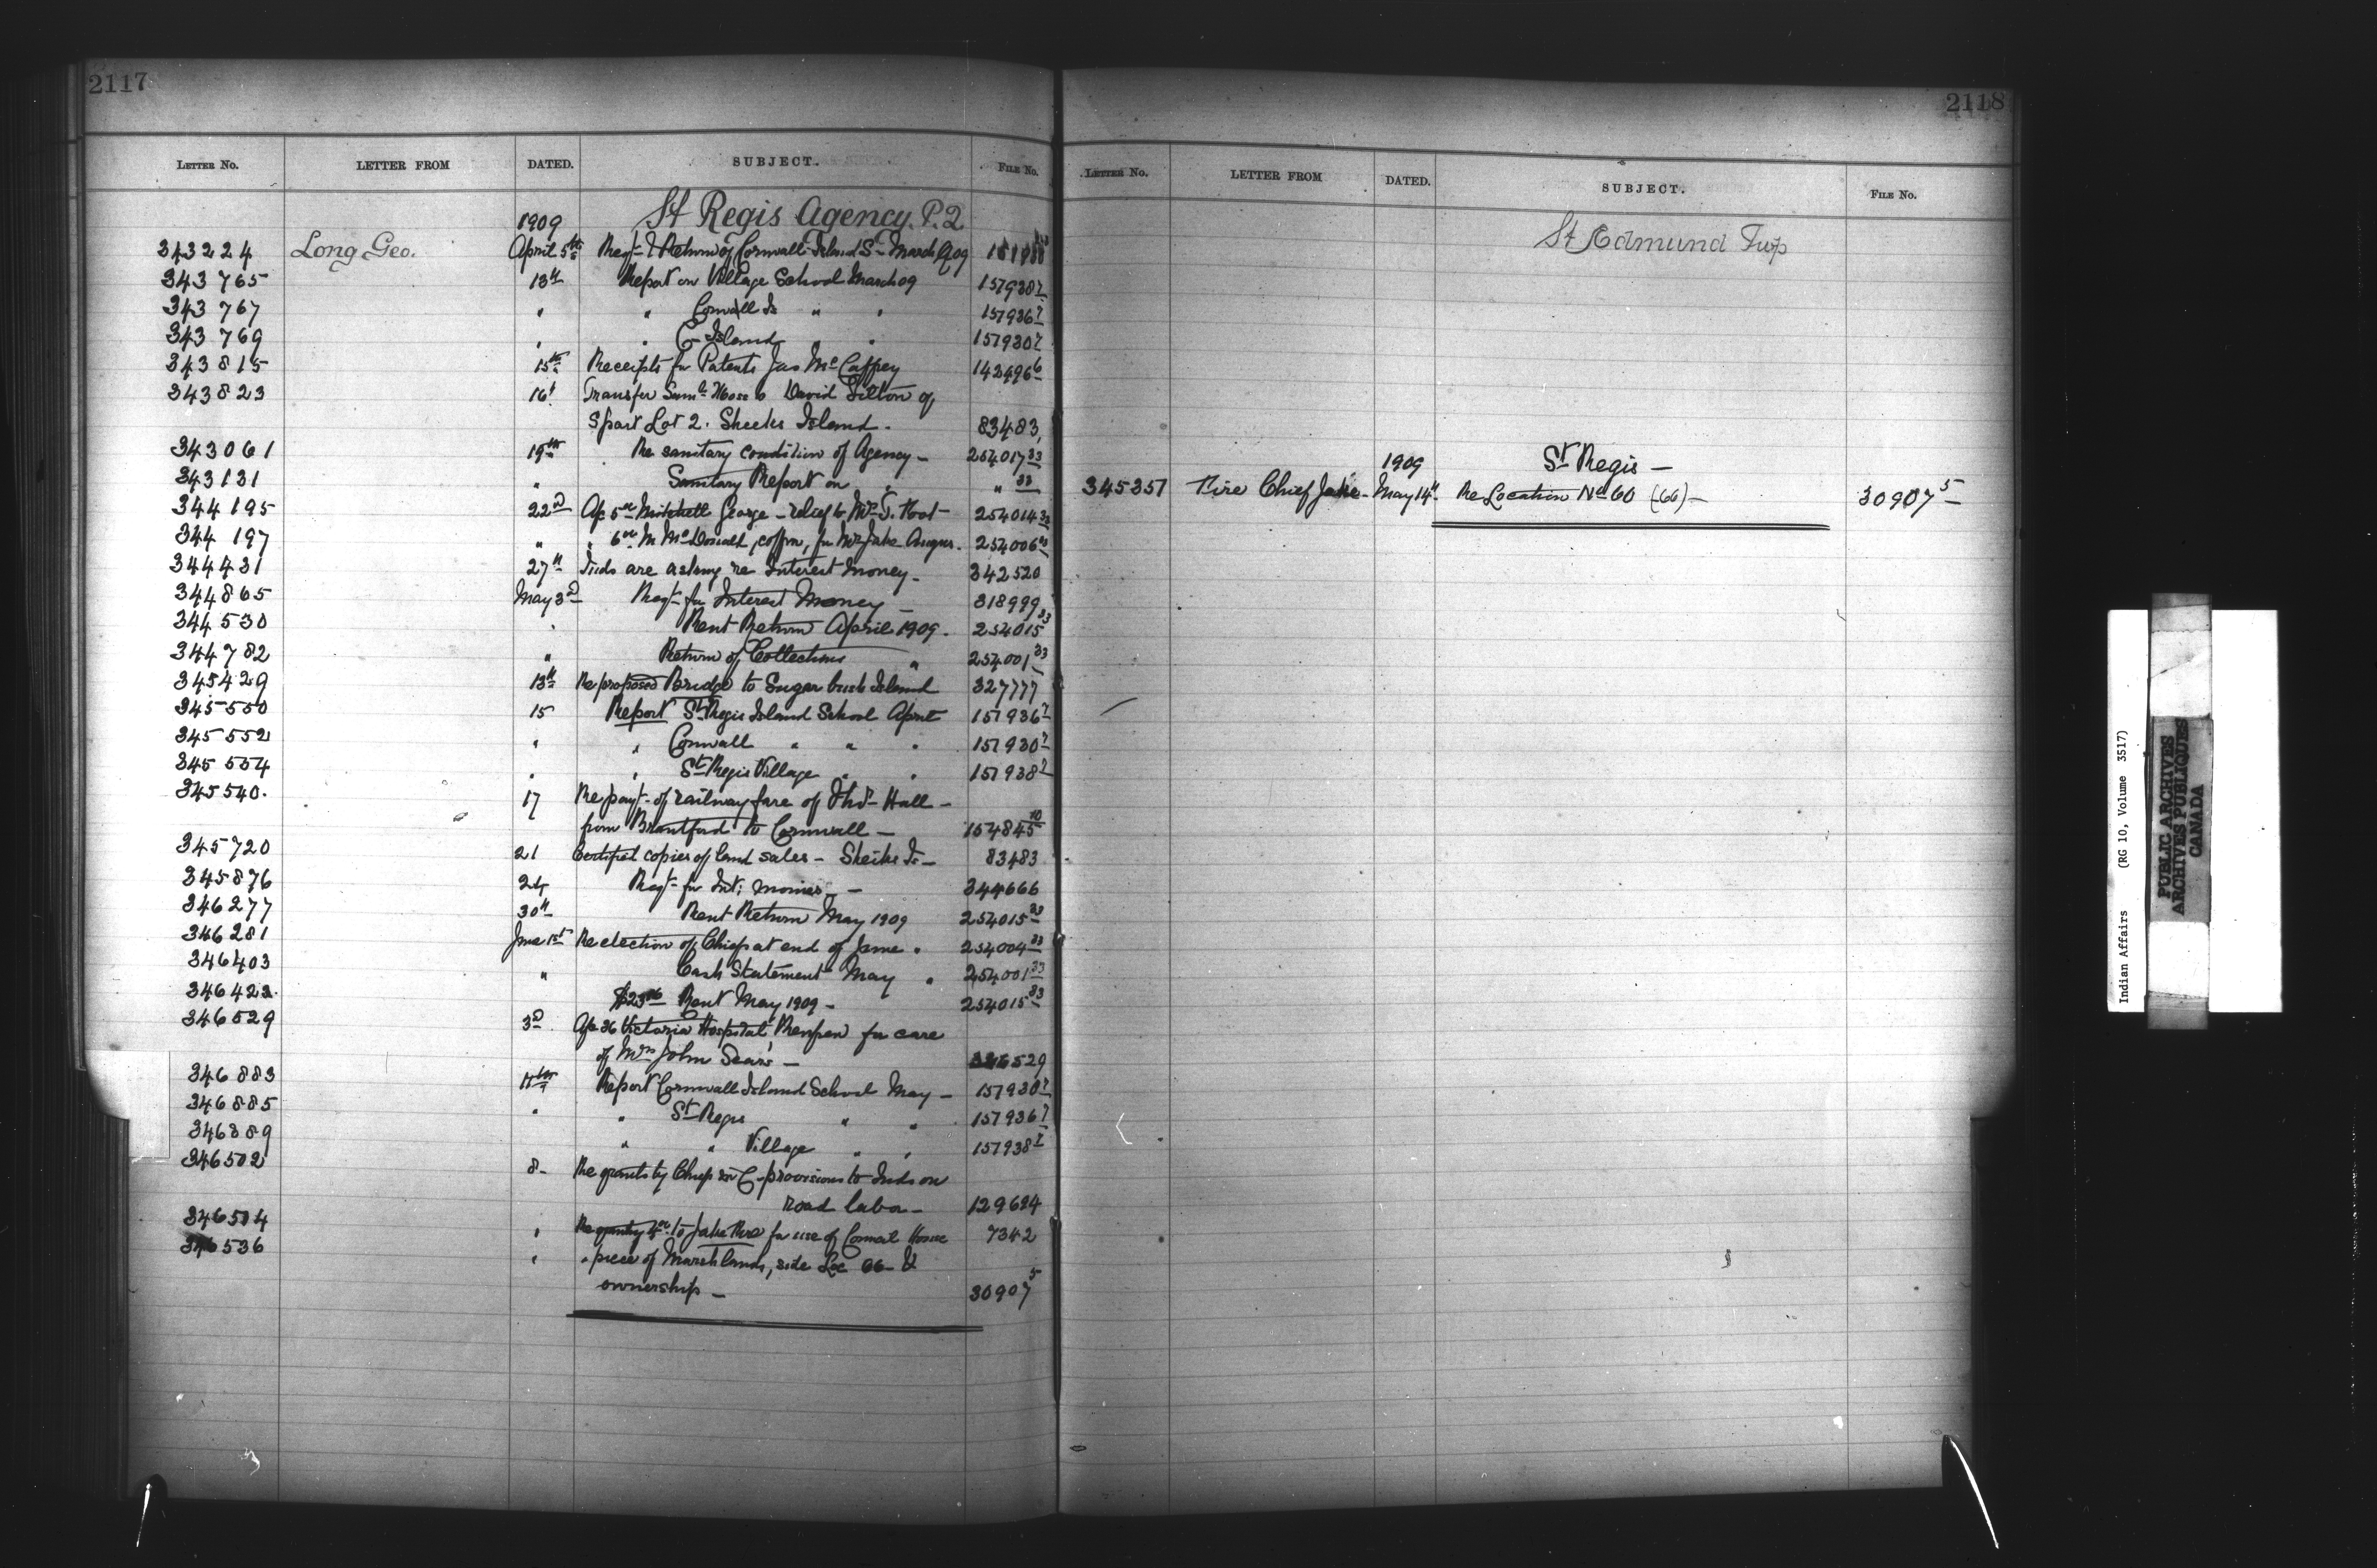 2117
LETTER NO. LETTER FROM DATED. SUBJECT. FILE NO.
1909 St Regis Agency. P. 2
343224 Long Geo. April 5th Reqt & Return of Cornwall Island S- March 1909
343765 13th Report on Village School March 09 157938 7
343767 " " Cornwall Is " " 157936 7
343769 " " C- Island " 157930 7
343815 15th Receipts for Patents Jas McCaffrey 142496 6
343823 16t Transfer Saml Moss to David Tilton of
S part Lot 2. Sheeks Island - 83483
343061 19th Re sanitary condition of Agency - 254017 33
343131 " Sanitary Report on " " 33
344195 22d Ap 5oo Mitchell George - relief to Mrs J. Foot - 254014 33
344197 " " 6oo M McDonald, coffin, for Mrs Jake Angus. 254006 33
344431 27th Inds are asking re Interest money - 342520
344865 May 3d Reqt for Interest Money - 318999
344530 " Rent Return April 1909. 254015 33
344782 " Return of Collections " 254001 33
345429 13th Re proposed Bridge to Sugar bush Island 327777
345550 15 Report St Regis Island School April 157936 7
345552 " " Cornwall " " " 157930 7
345554 " " St Regis Village " " 157938 7
345540. 17 Re payt of railway fare of Thos Hall -
from Brantford to Cornwall - 154845 10
345720 21 Certified copies of land sales - Sheiks Is - 83483
345876 24 Reqt for Int: monies - 344666
346277 30th Rent Return May 1909 254015 33
346281 June 1st Re election of Chiefs at end of June. 254004 33
346403 " Cash Statement May " 254001 33
346422. Rent May 1909 - 254015 33
346529 3d Ap 36 Victoria Hospital, for care
of Mrs John Sears - 346529
346883 Report Cornwall Island School May - 157930 7
346885 " " St Regis " " 157936 7
346889 " " Village " " 157938 7
346502 8- Re grants by Chiefs in C- provisions to Inds on
road labor - 129624
346504 " Re granting to Jake Fire for use of Council House 7342
346536 " " piece of Marsh lands, side Loc 66 - &
ownership - 30907 5
2118
LETTER NO. LETTER FROM DATED. SUBJECT. FILE NO.
St Edmund Twp
1909 St Regis -
345357 Fire Chief Jake - May 14th Re Location No 60 (66) - 30907 5
Indian Affairs (RG 10, Volume 3517)
PUBLIC ARCHIVES
ARCHIVES PUBLIQUES
CANADA